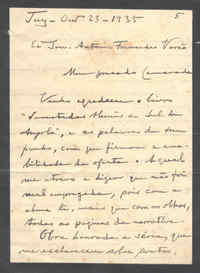 Tuy - Out 23 - 1935
5
Ex Snr. António Fernandes Varão
Meu prezado Camarada
Venho agradecer o livro
"Investidas Alemãs ao Sul de
Angola", e as palavras do seu
punho, com que firmou a ama-
bilidade da oferta. Aquele
me atrevo a dizer que não foi
mal empregado, pois com a
alma li, mais que com os olhos,
todas as páginas da narrativa.
Obra honrada e séria, que
me esclareceu sobre pontos